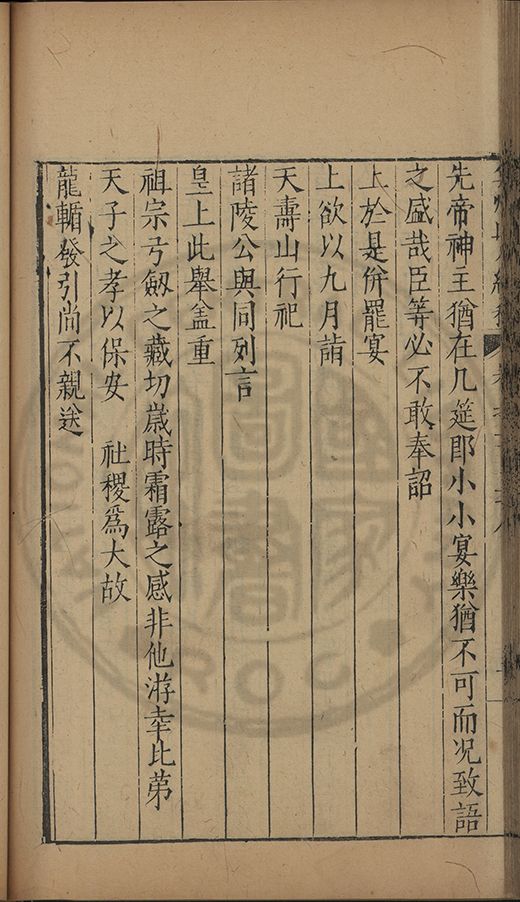 先帝神主猶在几筵即小小宴樂猶不可而况致語
之盛哉臣等必不敢奉詔
上於是併罷宴
上欲以九月詣
天壽山行祀
諸陵公與同列言
皇上此舉盖重
祖宗弓劒之藏切歲時霜露之感非他游幸比第
天子之孝以保安 社稷爲大故
龍輴發引尚不親送